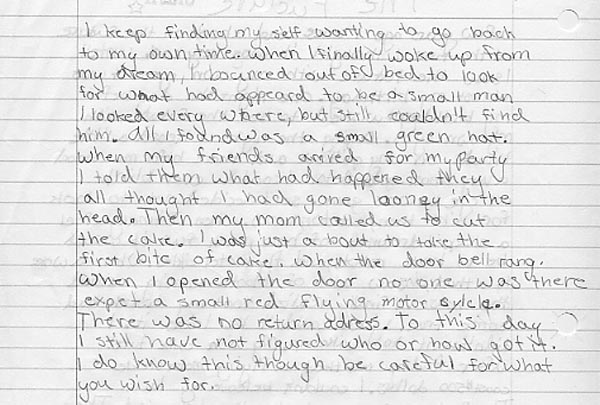 I keep finding my self wanting to go back
to my own time. When I finally woke up from
my dream, I bounced out off bed to look
for what had appeard to be a small man
I looked every where, but still couldn't find
him. All I found was a small green hat.
When my friends arived for my party
I told them what had happened they
all thought I had gone looney in the
head. Then my mom called us to cut
the cake. I was just a bout to take the
first bite of cake. When the door bell rang.
When I opened the door no one was there
expet a small red flying motor sylcle.
There was no return adress. To this day
I still have not figured who or how got it.
I do know this though be careful for what
you wish for.